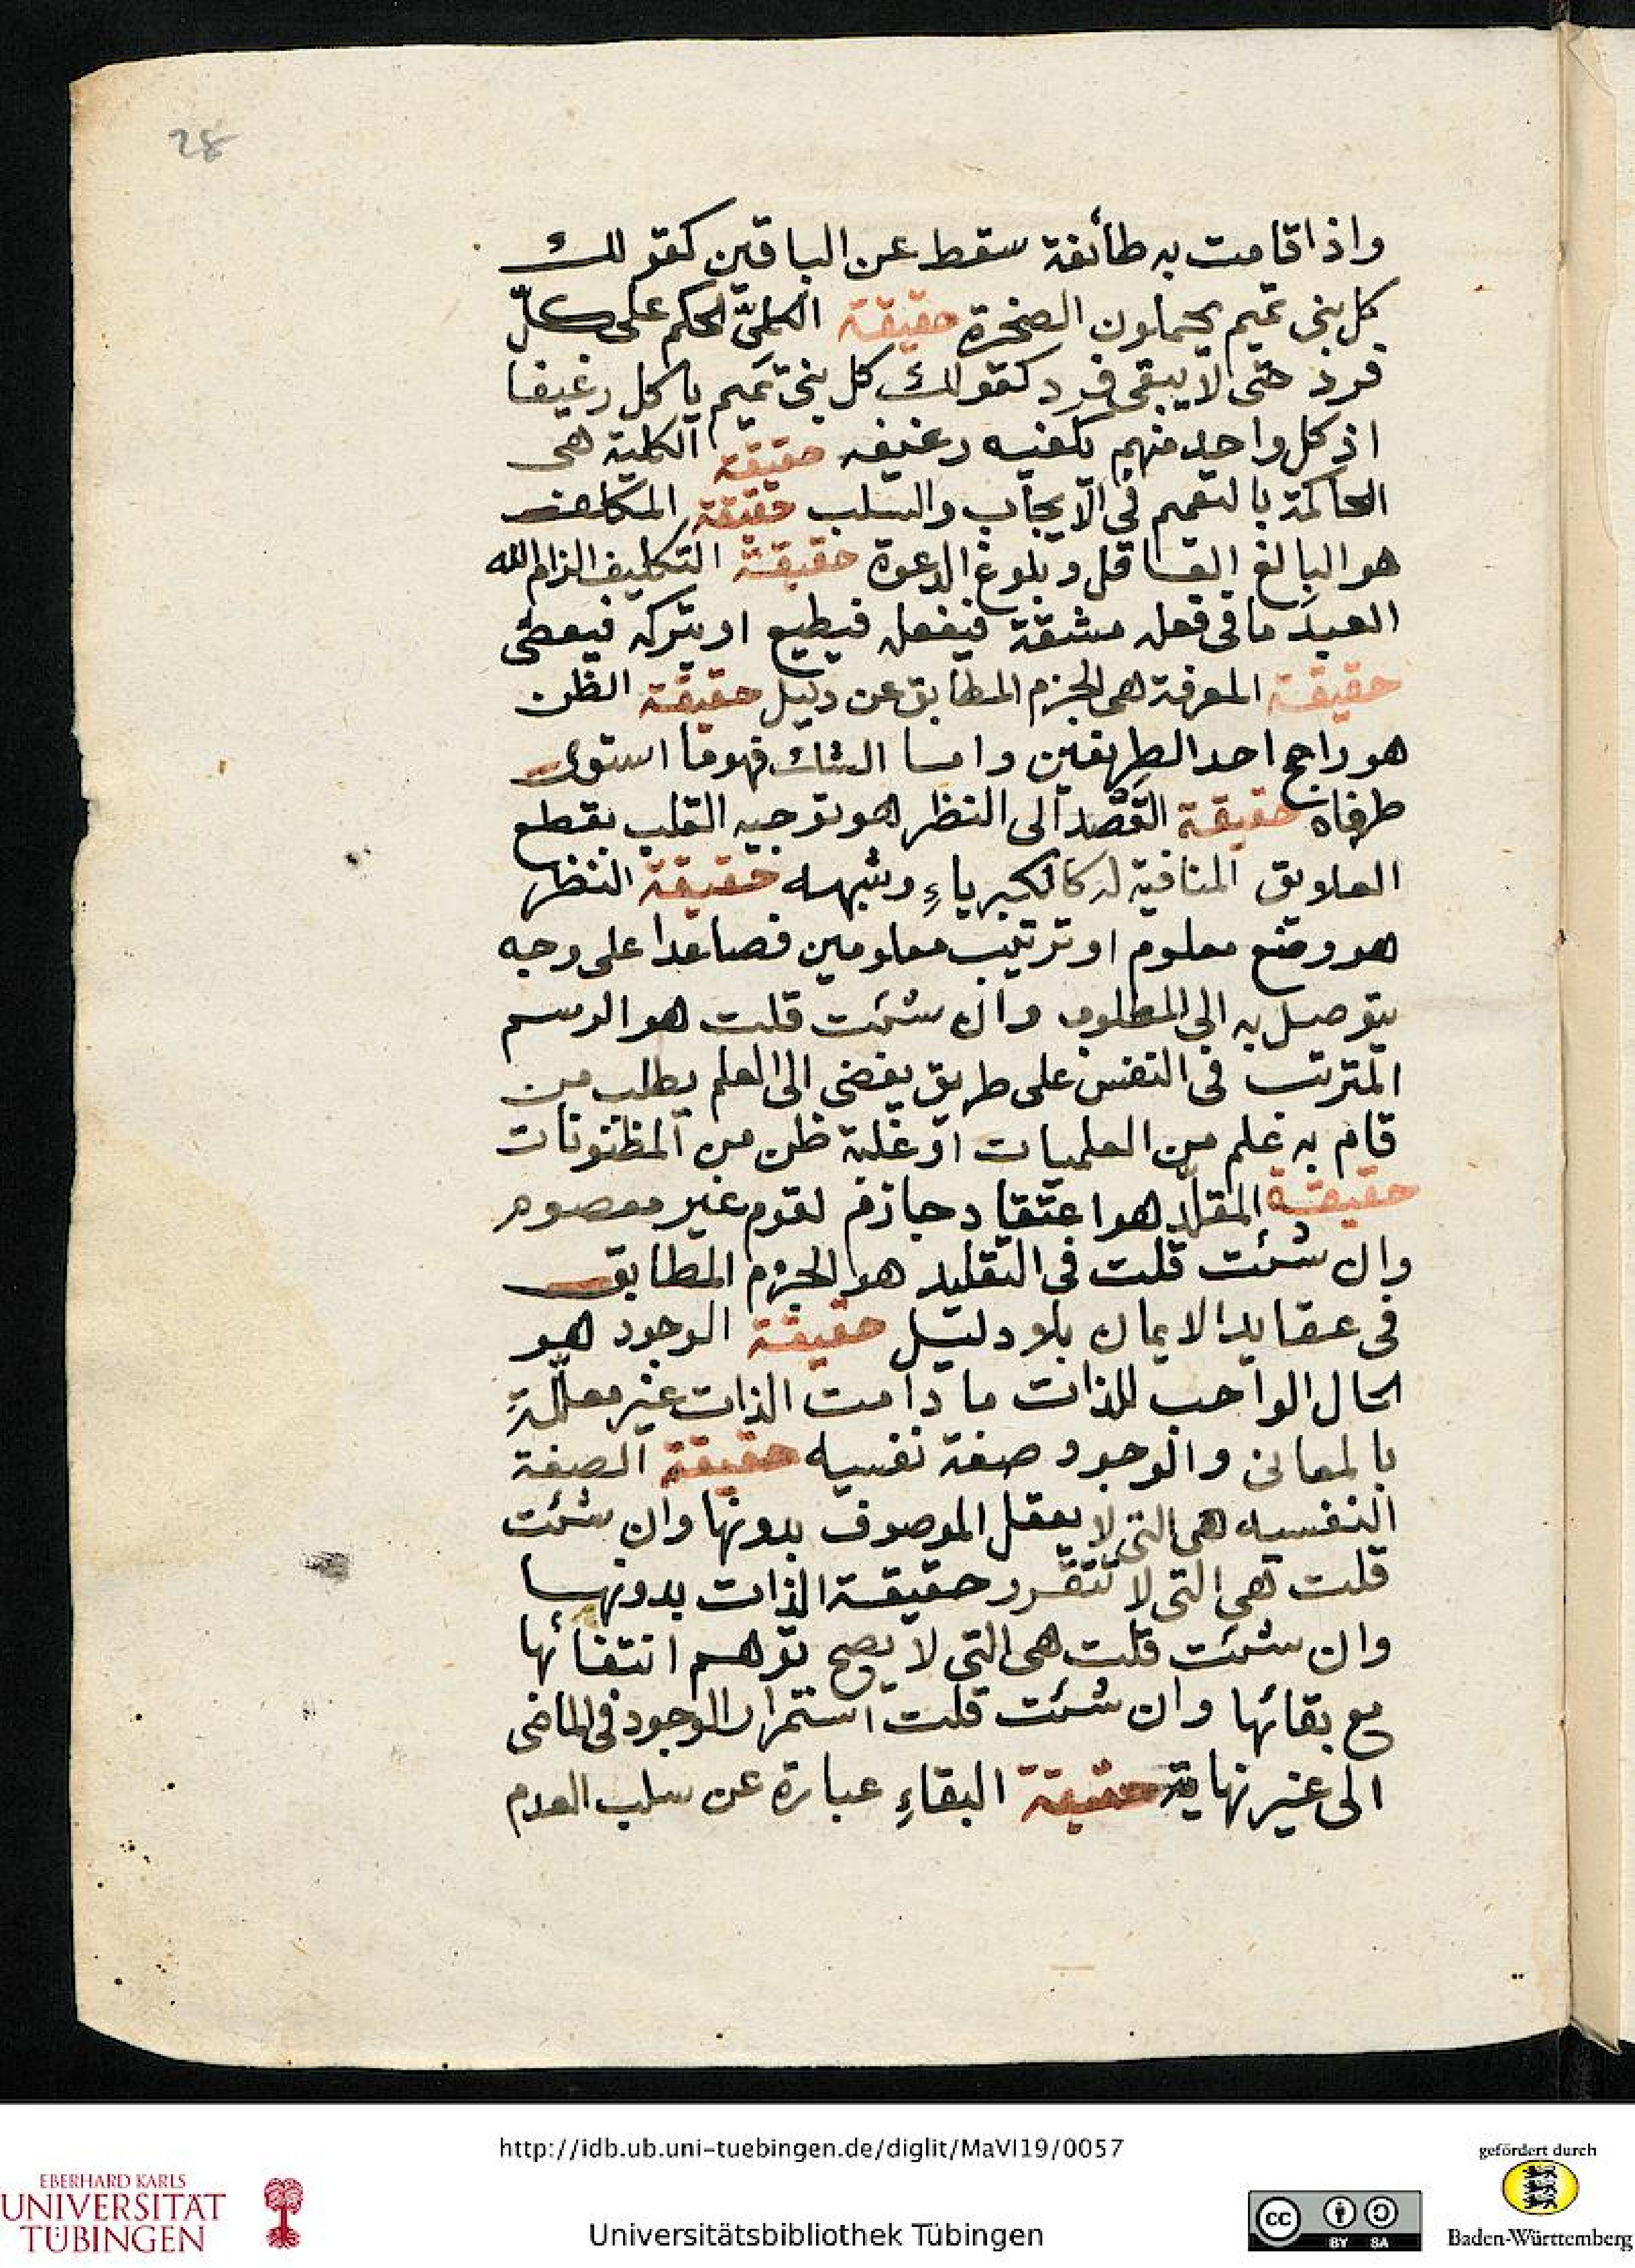 28
واذا قامت به طائفة سقط عن الباقين كقولك
كل بنى تميم يحملون الصخرة حقيقة الكلىّ الحكم على كلّ
فرد حتى لا يبقى فرد كقولك كل بنى تميم ياكل رغيفا
اذ كل واحد منهم يكفيه رغيفه حقيقة الكلية هى
الحاكمة بالتعميم فى الايجاب والسلب حقيقة المكلف
هو البالغ العاقل وبلوغ الدعوة حقيقة التكليف الزام الله
العبد ما فى فعله مشقة فيفعله فيطيع او يتركه فيعصى
حقيقة المعرفة هى الجزم المطابق عن دليل حقيقة الظن
هو راجح احد الطريفين واما الشك فهو ما استوى
طرفاه حقيقة القصد الى النظر هو توجيه القلب بقطع
العلايق المنافية له كالكبرياءِ وشبهه حقيقة النظر
هو وضع معلوم او ترتيب معلومين فصاعدا على وجه
يتوصل به الى المطلوب وان شئت قلت هو الرسم
المترتب فى النفس على طريق يفضى الى العلم يطلب من
قام به علم من العلميات او غلبة ظن من المظنونات
حقيقة المقلد هو اعتقاد جازم لقوم غير معصوم
وان شئت قلت فى التقليد هو الجزم المطابق
فى عقايد الايمان بلا دليل حقيقة الوجود هو
الحال الواجب للذات ما دامت الذات غير معلّلة
بالمعانى والوجود صفة نفسيه حقيقة الصفة
النفسيه هى التى لا يعقل الموصوف بدونها وان شئت
قلت هى التى لا تتقرر حقيقة الذات بدونها
وان شئت قلت هى التى لا يصح توهم انتفائها
مع بقائها وان شئت قلت استمرار الوجود فى الماضى
الى غير نهاية حقيقة البقاءِ عبارة عن سلب العدم
http://idb.ub.uni-tuebingen.de/diglit/MaVI19/0057
EBERHARD KARLS
UNIVERSITÄT
TÜBINGEN
Universitätsbibliothek Tübingen
cc BY SA
gefördert durch
Baden-Württemberg